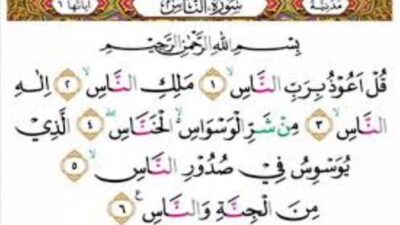 مدنية سورة الناس آياتها ٦
بِسْمِ اللّٰهِ الرَّحْمٰنِ الرَّحِيْمِ
قُلْ اَعُوْذُ بِرَبِّ النَّاسِۙ ۝١ مَلِكِ النَّاسِۙ ۝٢ اِلٰهِ
النَّاسِۙ ۝٣ مِنْ شَرِّ الْوَسْوَاسِ ەۙ الْخَنَّاسِۖ ۝٤ الَّذِيْ
يُوَسْوِسُ فِيْ صُدُوْرِ النَّاسِۙ ۝٥
مِنَ الْجِنَّةِ وَالنَّاسِ ࣖ ۝٦